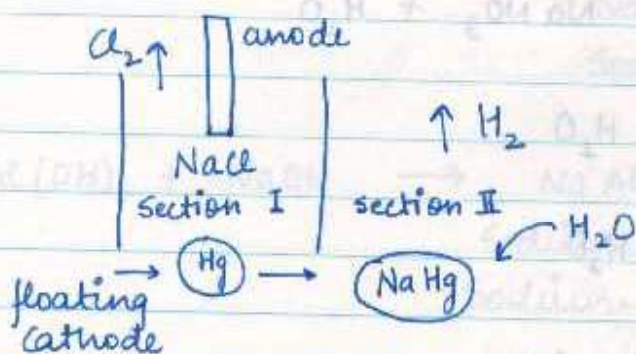 Cl₂ ↑ anode
NaCl
section I
↑ H₂
section II
H₂O
floating
cathode
→ Hg →
NaHg